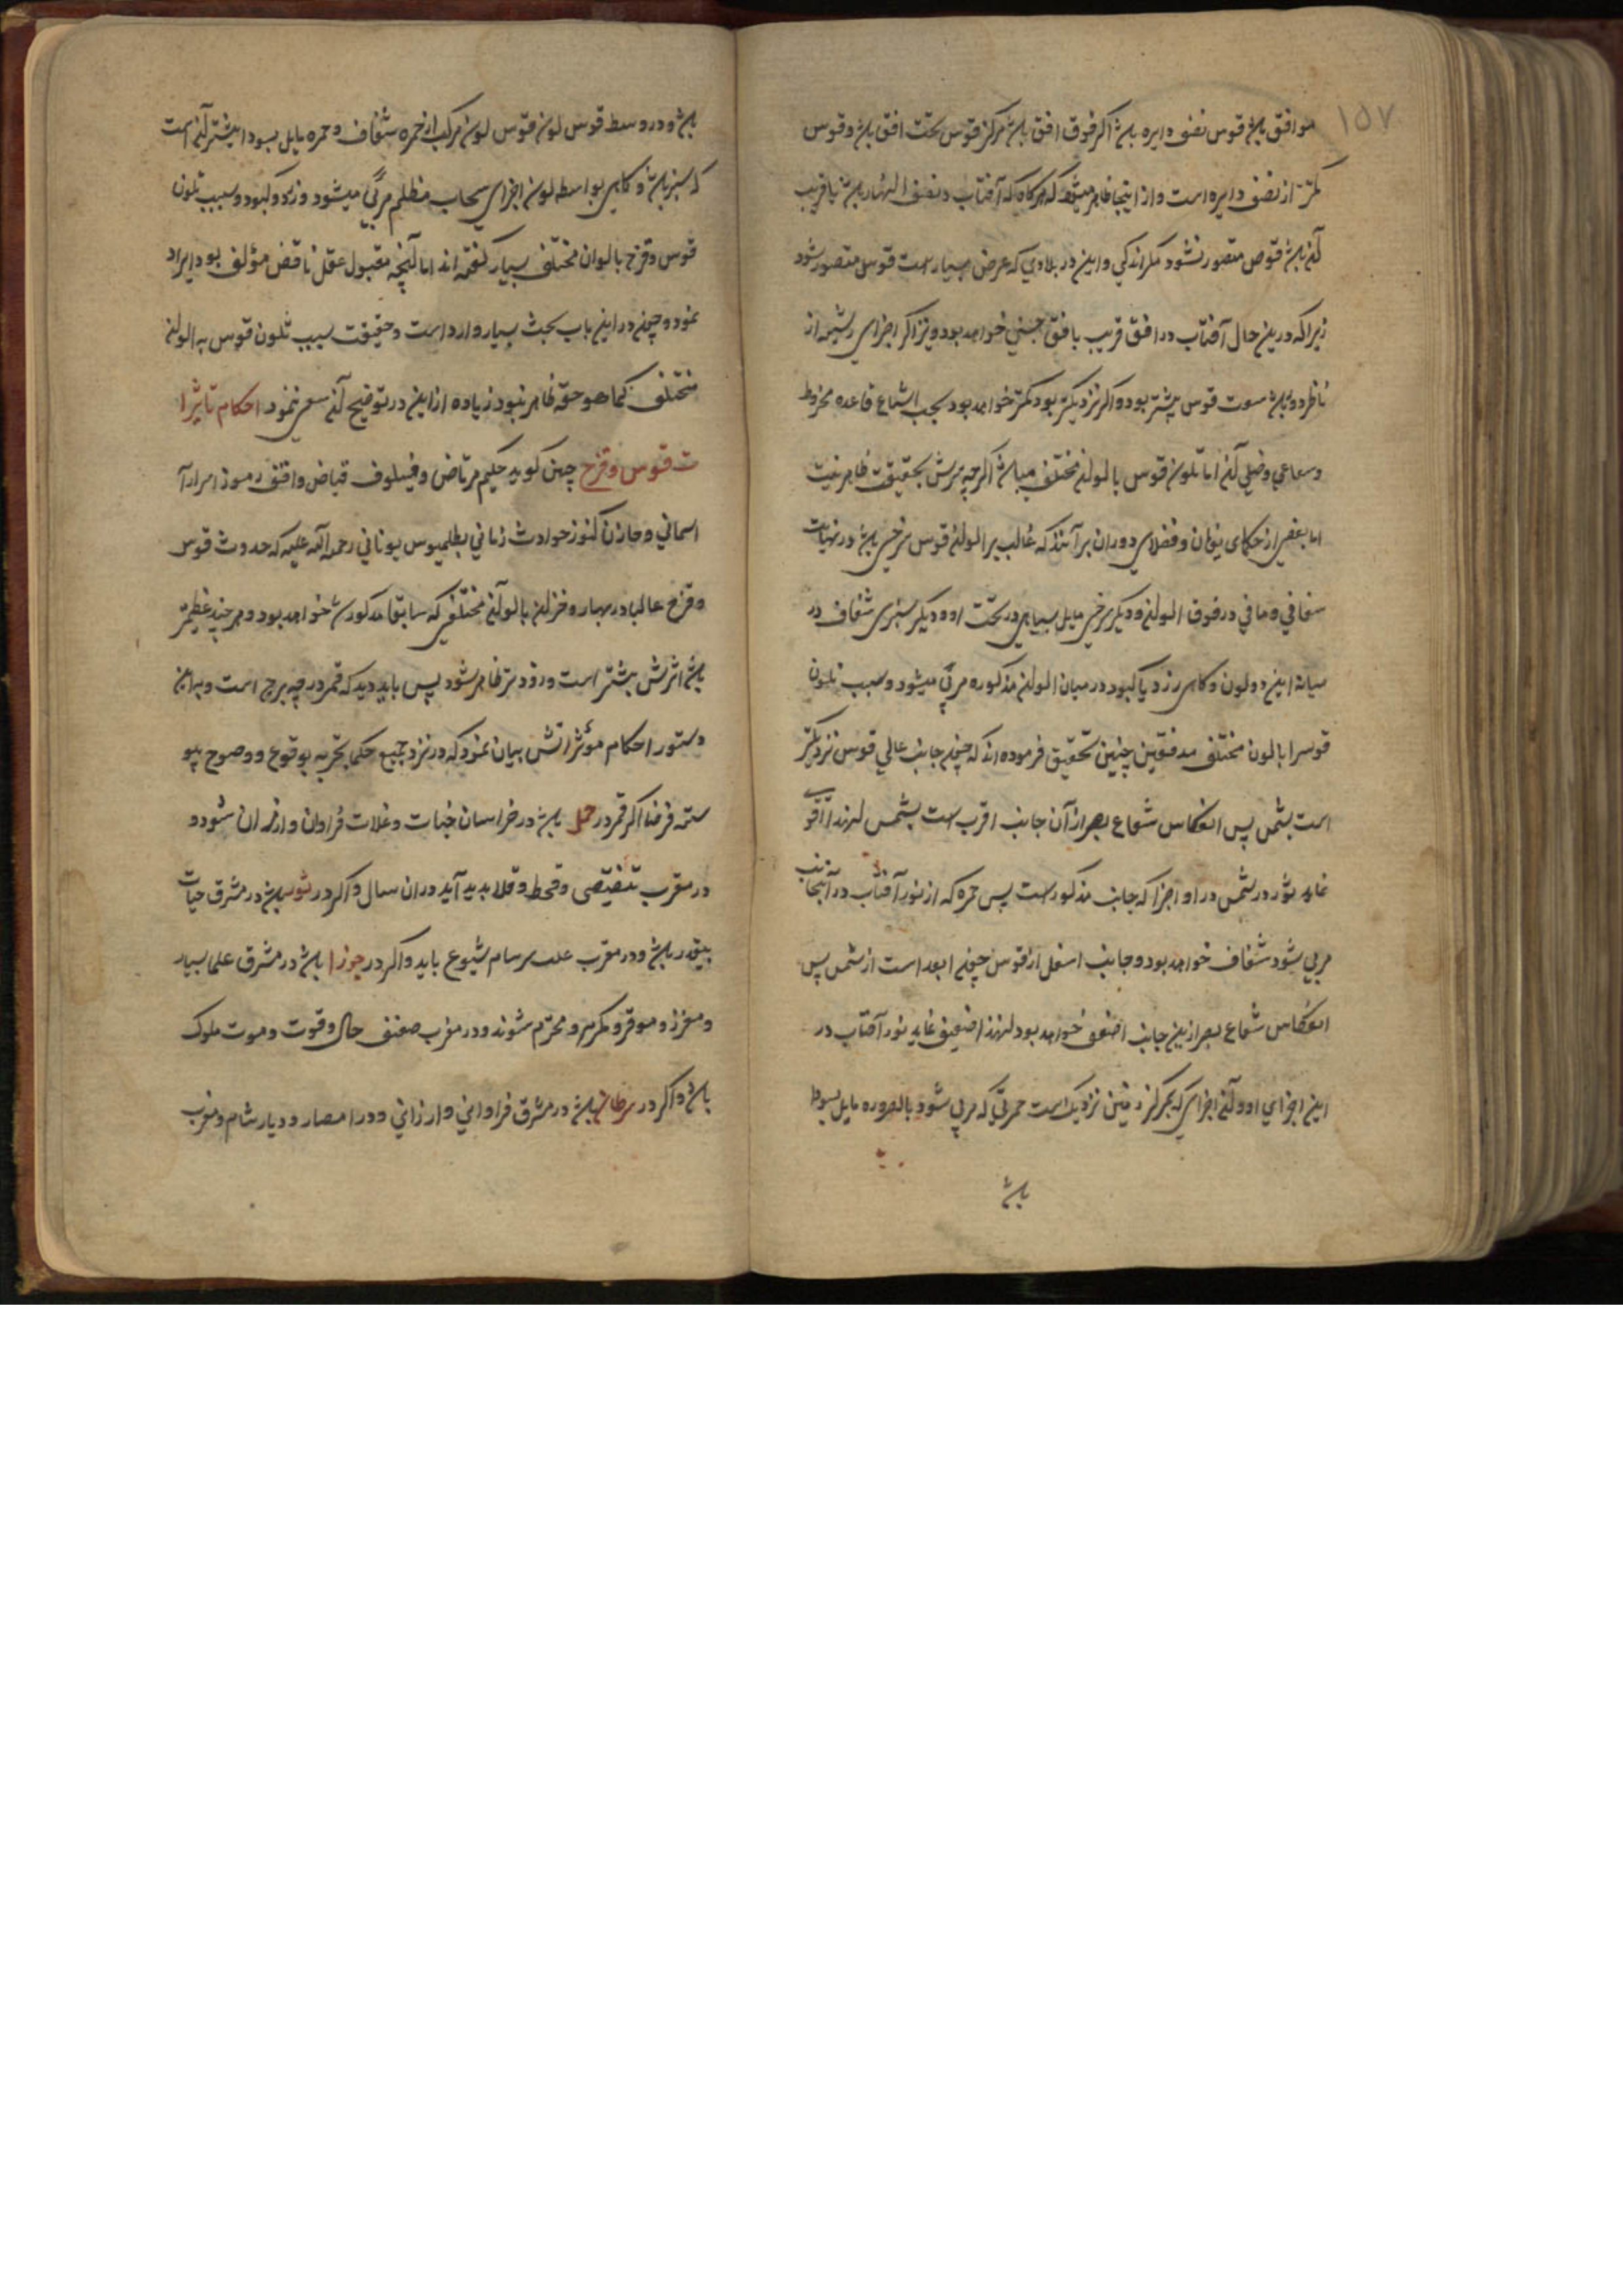 ۱۵۷
موافق باشد قوس نصف دایره باشد اگر فوق افق باشد مرکز قوس تحت افق باشد و قوس
کمتر از نصف دایره است و از اینجا ظاهر میشود که هرکاه که آفتاب در نصف النهار باشد یا قریب
آن باشد قوص متصور نشود مکر اندکی و این در بلادی که عرض بسیار است قوس متصور شود
زیرا که درین حال آفتاب در افق قریب بافق حسی خواهد بود و نیز اکر اجزای رشیه از
ناظر دور باشد سعت قوس بیشتر بود و اکر نزدیکتر بود کمتر خواهد بود بحسب اتساع قاعده مخروط
وسعاعی وضیق آن اما تلون قوس بالوان مختلف میباشد اکرچه سرش بحقیقت ظاهر نیست
اما بعضی از حکمای یونان و فضلای دوران برآنند که غالب بر الوان قوس سرخی باشد در نهایت
صفافی وصافی در فوق الوان و دیکر سرخی مایل بسیاهی در تحت او و دیکر سبزی شفاف در
میانه این دو لون و کاهی زرد یا کبود در میان الوان مذکوره مرئی میشود و سبب تلون
قوسرا بالون مختلف مدققین چنین تحقیق فرموده اند که چون جانب عالی قوس نزدیکتر
است بشمس پس انعکاس شعاع بصر از آن جانب اقرب است بشمس لهذا اقوی
نماید نور در شمس در او اجزا که جانب مذکور است پس حمره که از نور آفتاب در آنجانب
مرپی شود شفاف خواهد بود و جانب اسفل از قوس چون ابعد است از شمس پس
انعکاس شعاع بصر ازین جانب اضعف خواهد بود لهذا ضعیف نماید نور آفتاب در
این اجزای او و آن اجزای که بمرکز زمین نزدیک است حمرتی که مرپی شود بالضروره مایل بسواد
باشد
باشد و در وسط قوس لون قوس لون مرکب از حمره شفاف و حمره مایل بسواد بیشتر آنست
که سبز باشد و کاهی بواسطه لون اجزای سحاب مظلم مرئی میشود و زرد و کبود و سبب تلون
قوس وقزح بالوان مختلف بسیار کفته اند اما آنچه مقبول عقل ناقص مؤلف بود ایراد
نمود و چون در این باب بحث بسیار وارد است و حقیقت سبب تلون قوس به الوان
مختلف کما هو حقه ظاهر نبود زیاده از این در توضیح آن سعی ننمود احکام تاثیرا
ت قوس وقزح چنین کوید حکیم مرتاض و فیلسوف فیاض واقف رموز اسرار آ
اسمانی و خازن کنوز حوادث زمانی بطلمیوس یونانی رحمه الله علیه که حدوث قوس
وقزح غالبا در بهار و خزان بالوان مختلفی که سابقا مذکور شد خواهد بود و هر چند عظیمتر
باشد اثرش بیشتر است و زودتر ظاهر شود پس باید دید که قمر در چه برج است و بهمان
دستور احکام مؤثراتش بیان نمود که در نزد جمیع حکما بتجربه بوقوع و وضوح پیو
سته فرضا اکر قمر در حمل باشد در خراسان حبات و غلات فراوان و ارزان شود و
در مغرب تنقیصی و قحط و قلا بدید آید در ان سال و اکر در ثور باشد در مشرق حیات
بیقدر باشد و در مغرب علت سرسام شیوع یابد و اکر در جوزا باشد در مشرق علما بسیار
و معزز و موقر و مکرم و محترم شوند و در مغرب ضعف حال و قوت و موت ملوک
باشد و اکر در سرطان باشد در مشرق فراوانی و ارزانی و در امصار و دیار شام و مغرب